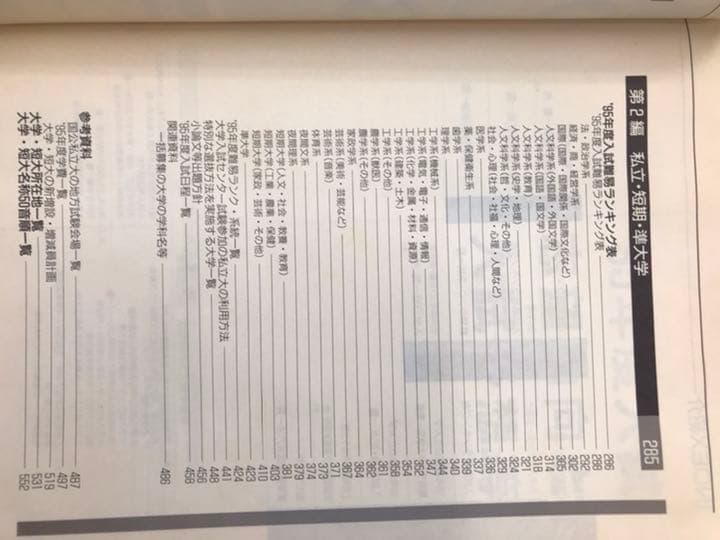 第2編 私立・短期・準大学 285
'95年度入試難易ランキング表
'95年度入試難易ランキング表 286
法・政治学系 288
経済・商・経営学系 292
国際(国際・国際関係・国際文化など) 302
人文科学系(外国語・外国文学) 305
人文科学系(国語・国文学) 314
人文科学系(教育) 318
人文科学系(史学・地理) 321
人文科学系(哲・文化・その他) 324
社会・心理(社会・社福・心理・人間など) 329
医学系 336
薬・保健衛生系 337
歯学系 339
理学系 340
工学系(機械系) 344
工学系(電気・電子・通信・情報) 347
工学系(化学・金属・材料・資源) 352
工学系(建築・土木) 354
工学系(その他) 358
農学系(獣医) 361
農学系(その他) 362
家政学系 364
芸術系(美術・芸能など) 367
芸術系(音楽) 371
体育系 373
夜間文系 374
夜間理系 379
短期大学(人文・社会・教養・教育) 381
短期大学(工業・農業・保健) 403
短期大学(家政・芸術・その他) 410
準大学 423
'95年度難易ランク・系統一覧 424
大学入試センター試験参加の私立大の利用方法 441
特別な選抜方法を実施する大学一覧 448
小論文等出題方針 456
'95年度入試日程一覧 458
関連資料
一括募集の大学の学科名等 486
参考資料
国公私立大の地方試験会場一覧 487
'95年度学費一覧 497
大学・短大の新増設・増減員計画 519
大学・短大所在地一覧 531
大学・短大名称50音順一覧 552